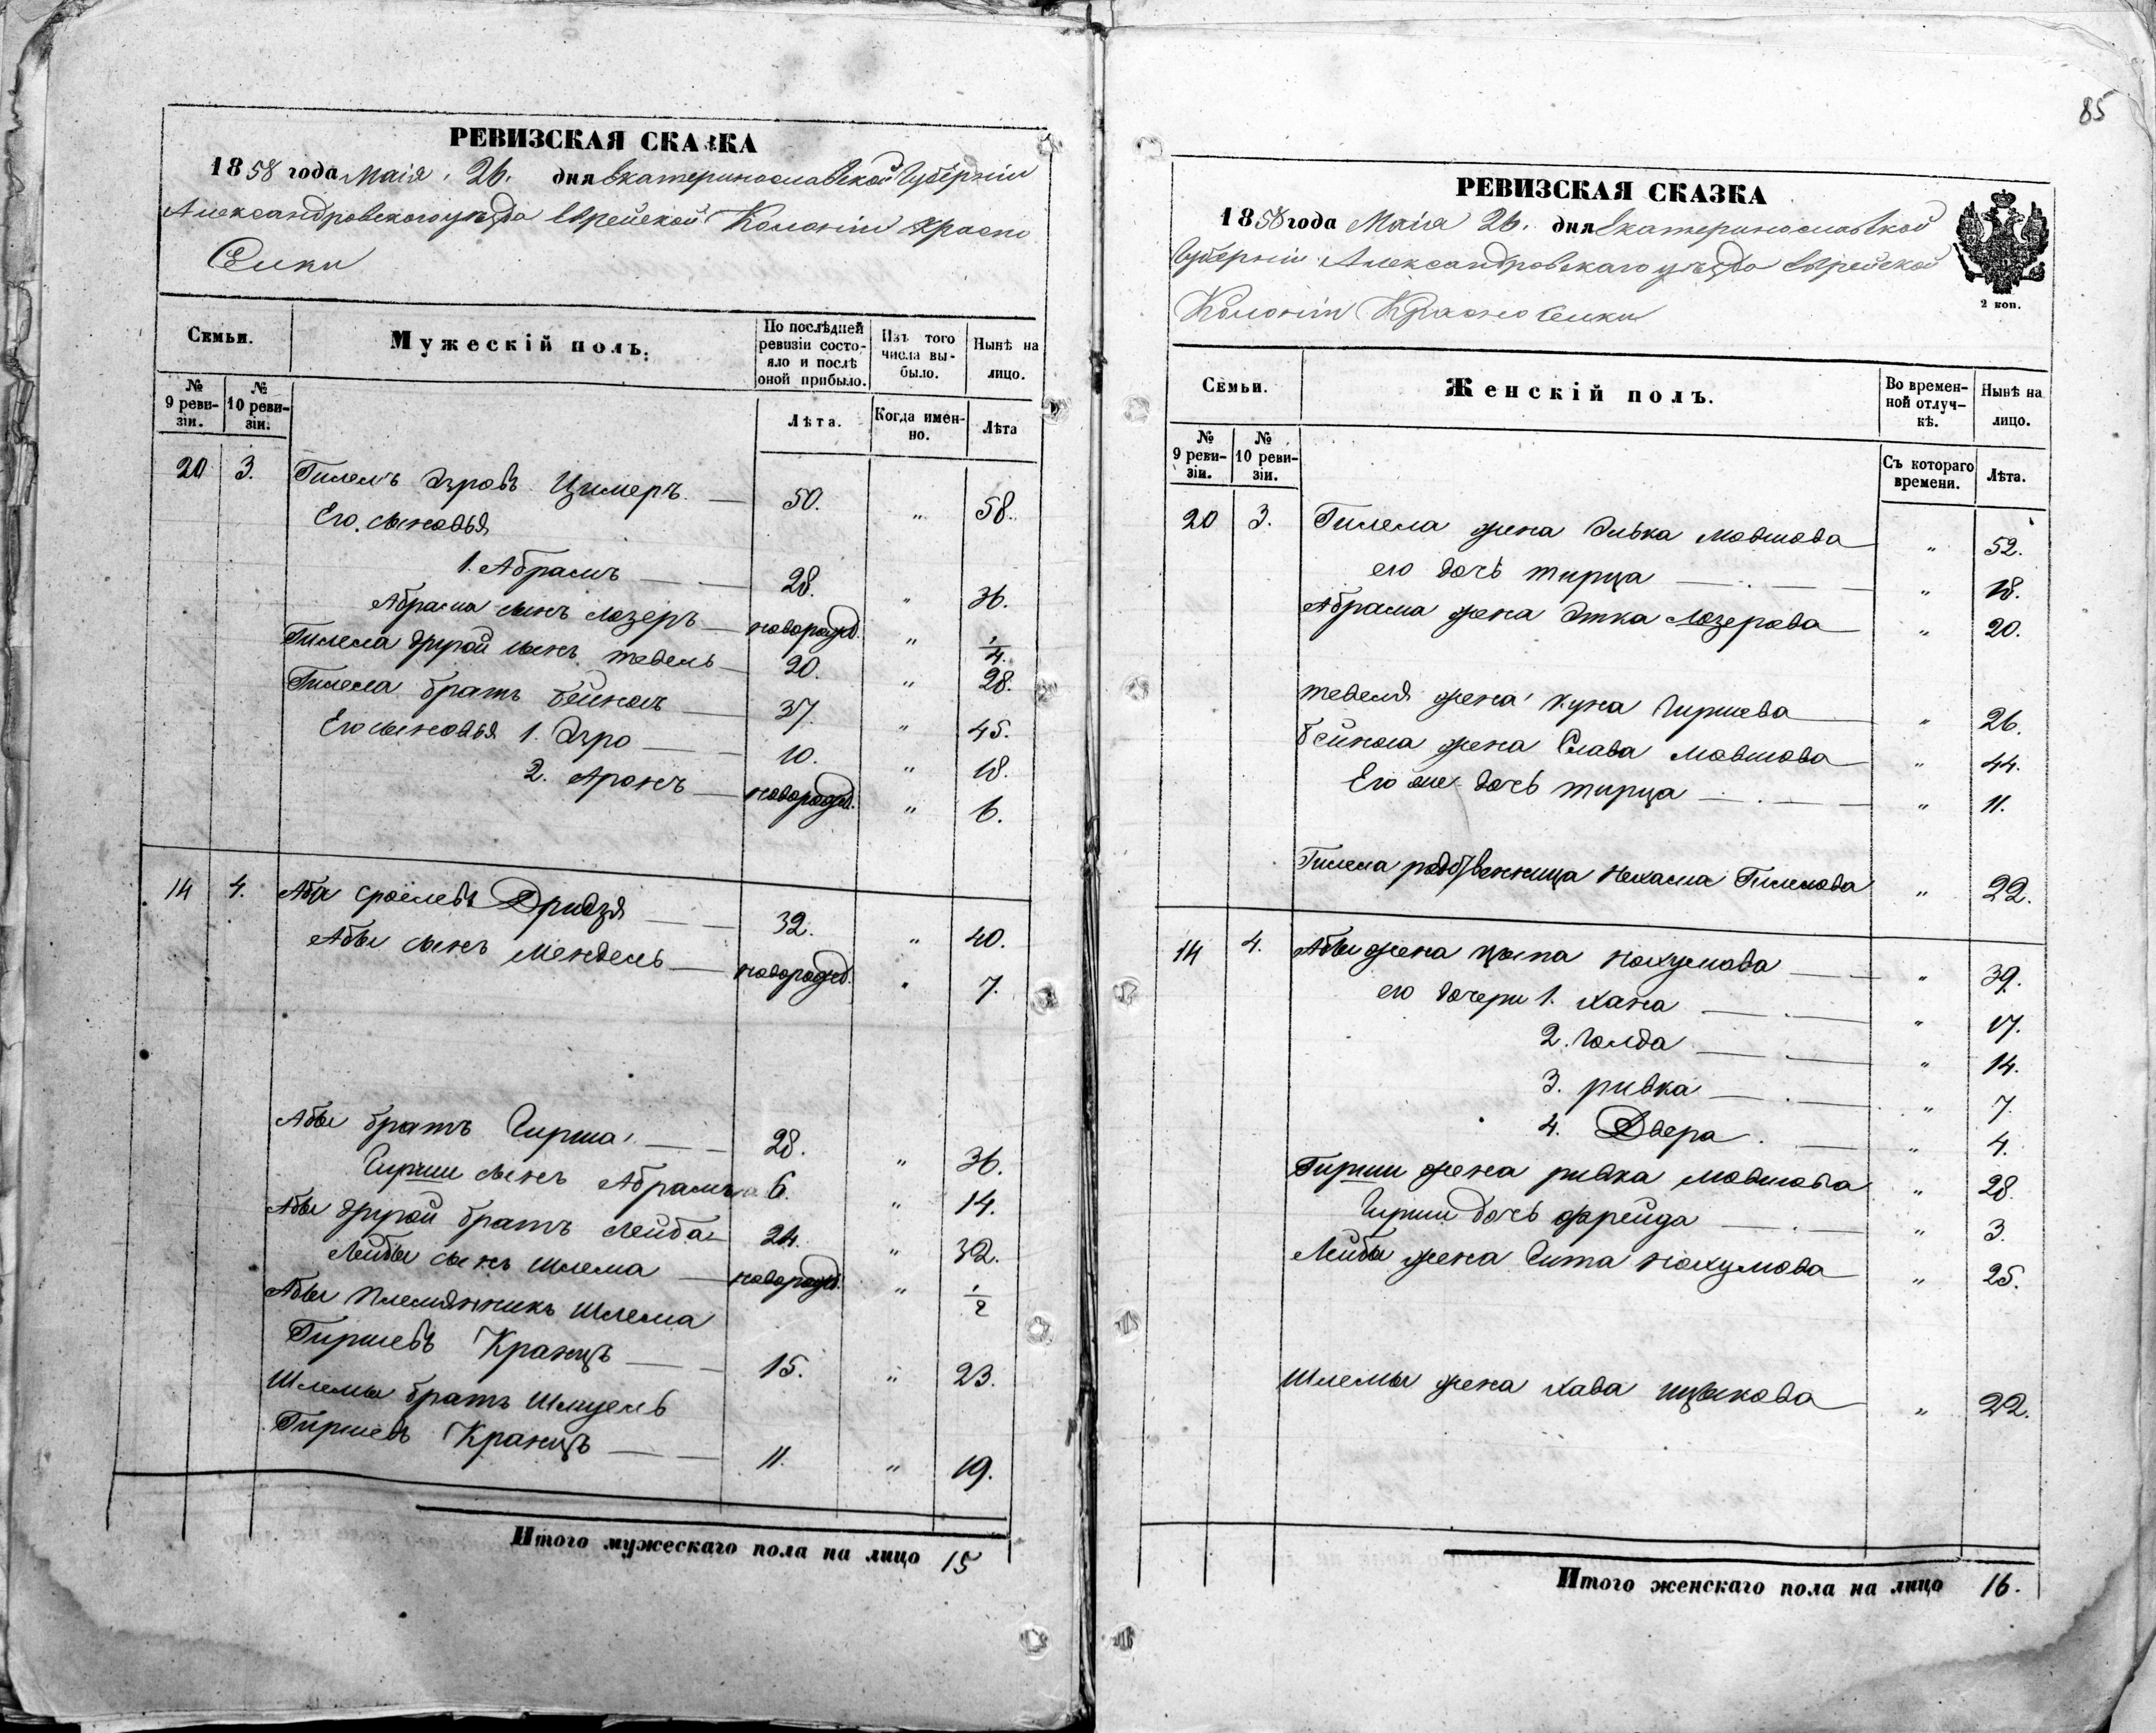 РЕВИЗСКАЯ СКАЗКА
1858 года Маія 26. дня Екатеринославской Губерніи
Александровского уезда Еврейской Колоніи Красно
Селки
Семьи.
Мужескій полъ.
По послѣдней ревизіи состояло и послѣ оной прибыло.
Изъ того числа выбыло.
Нынѣ на лицо.
№ 9 ревизіи.
№ 10 ревизіи.
Лѣта.
Когда именно.
Лѣта
20 3. Гилель Эзровъ Цимеръ. — 50. " 58.
Его сыновья
1. Абрамъ — — 28. " 36.
Абрама сынъ Лозеръ — новорожд. " 1/4.
Гилела другой сынъ тевель — 20. " 28.
Гилела братъ Бейномъ — 37. " 45.
Его сыновья 1. Эзро — — 10. " 18.
2. Аронъ — новорожд. " 6.
14 4. Аба Сроелевъ Дридзя — — 32. " 40.
Абы сынъ Мендель — новорожд. " 7.
Абы братъ Гирша — — 28. " 36.
Гирши сынъ Абрамъ 6. " 14.
Абы другой братъ Лейба — 24. " 32.
Лейбы сынъ Шлема — новорожд. " 1/2
Абы племянникъ Шлема
Гиршевъ Кранцъ — — 15. " 23.
Шлемы братъ Шмуель
Гиршевъ Кранцъ — — 11. " 19.
Итого мужескаго пола на лицо 15
85
РЕВИЗСКАЯ СКАЗКА
1858 года Маія 26. дня Екатеринославской
Губерніи Александровскаго уезда Еврейской
Колоніи Красно Селки
2 коп.
Семьи.
Женскій полъ.
Во временной отлучкѣ.
Нынѣ на лицо.
№ 9 ревизіи.
№ 10 ревизіи.
Съ котораго времени.
Лѣта.
20 3. Гилела жена Элька Мовшова — " 52.
его дочь тирца — . — " 18.
Абрама жена Этка Лозерова — " 20.
тевеля жена Куна Гиршева — " 26.
Бейнома жена Слава Мовшова — " 44.
Его же дочь тирца — . — — " 11.
Гилела родственница Нехама Гилелова " 22.
14 4. Абы жена Цыпа Нохумова — — " 39.
его дочери 1. Хана — . — " 17.
2. Голда — . — " 14.
3. ривка — . — " 7.
4. Двера . — " 4.
Гирши жена ривка Мовшова " 28.
Гирши дочь фрейда — . " 3.
Лейбы жена Гита Нохумова — " 25.
Шлемы жена Хава ицыкова — " 22.
Итого женскаго пола на лицо 16.